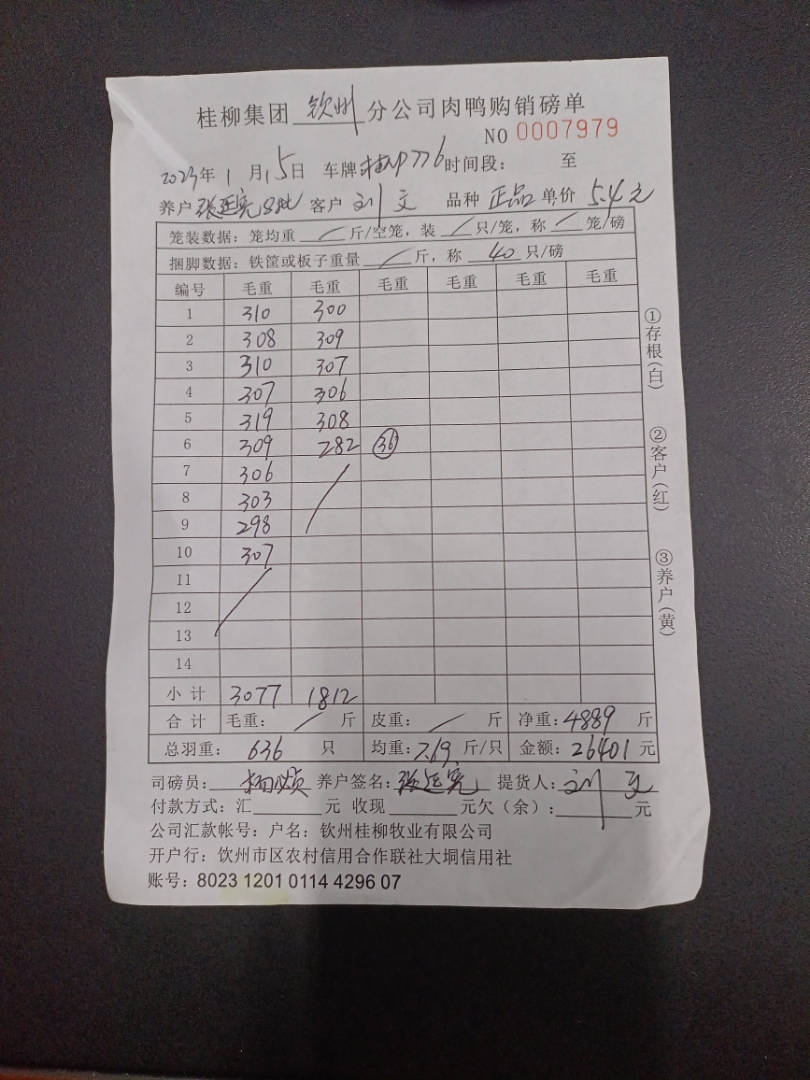 桂柳集团 钦州 分公司肉鸭购销磅单
NO 0007979
2023年 1 月 15日 车牌 776 时间段： 至
养户 张运宪 客户 刘文 品种 正品 单价 5.4元
笼装数据：笼均重 / 斤/空笼，装 / 只/笼，称 / 笼/磅
捆脚数据：铁筐或板子重量 / 斤，称 40 只/磅
编号 毛重 毛重 毛重 毛重 毛重 毛重
1 310 300
2 308 309
3 310 307
4 307 306
5 319 308
6 309 282 36
7 306
8 303
9 298
10 307
11
12
13
14
小计 3077 1812
合计 毛重： / 斤 皮重： / 斤 净重：4889 斤
总羽重： 636 只 均重：7.69 斤/只 金额：26401 元
司磅员： 养户签名：张运宪 提货人：刘文
付款方式：汇 元 收现 元欠（余）： 元
公司汇款帐号：户名：钦州桂柳牧业有限公司
开户行：钦州市区农村信用合作联社大垌信用社
账号：8023 1201 0114 4296 07
①存根（白）
②客户（红）
③养户（黄）